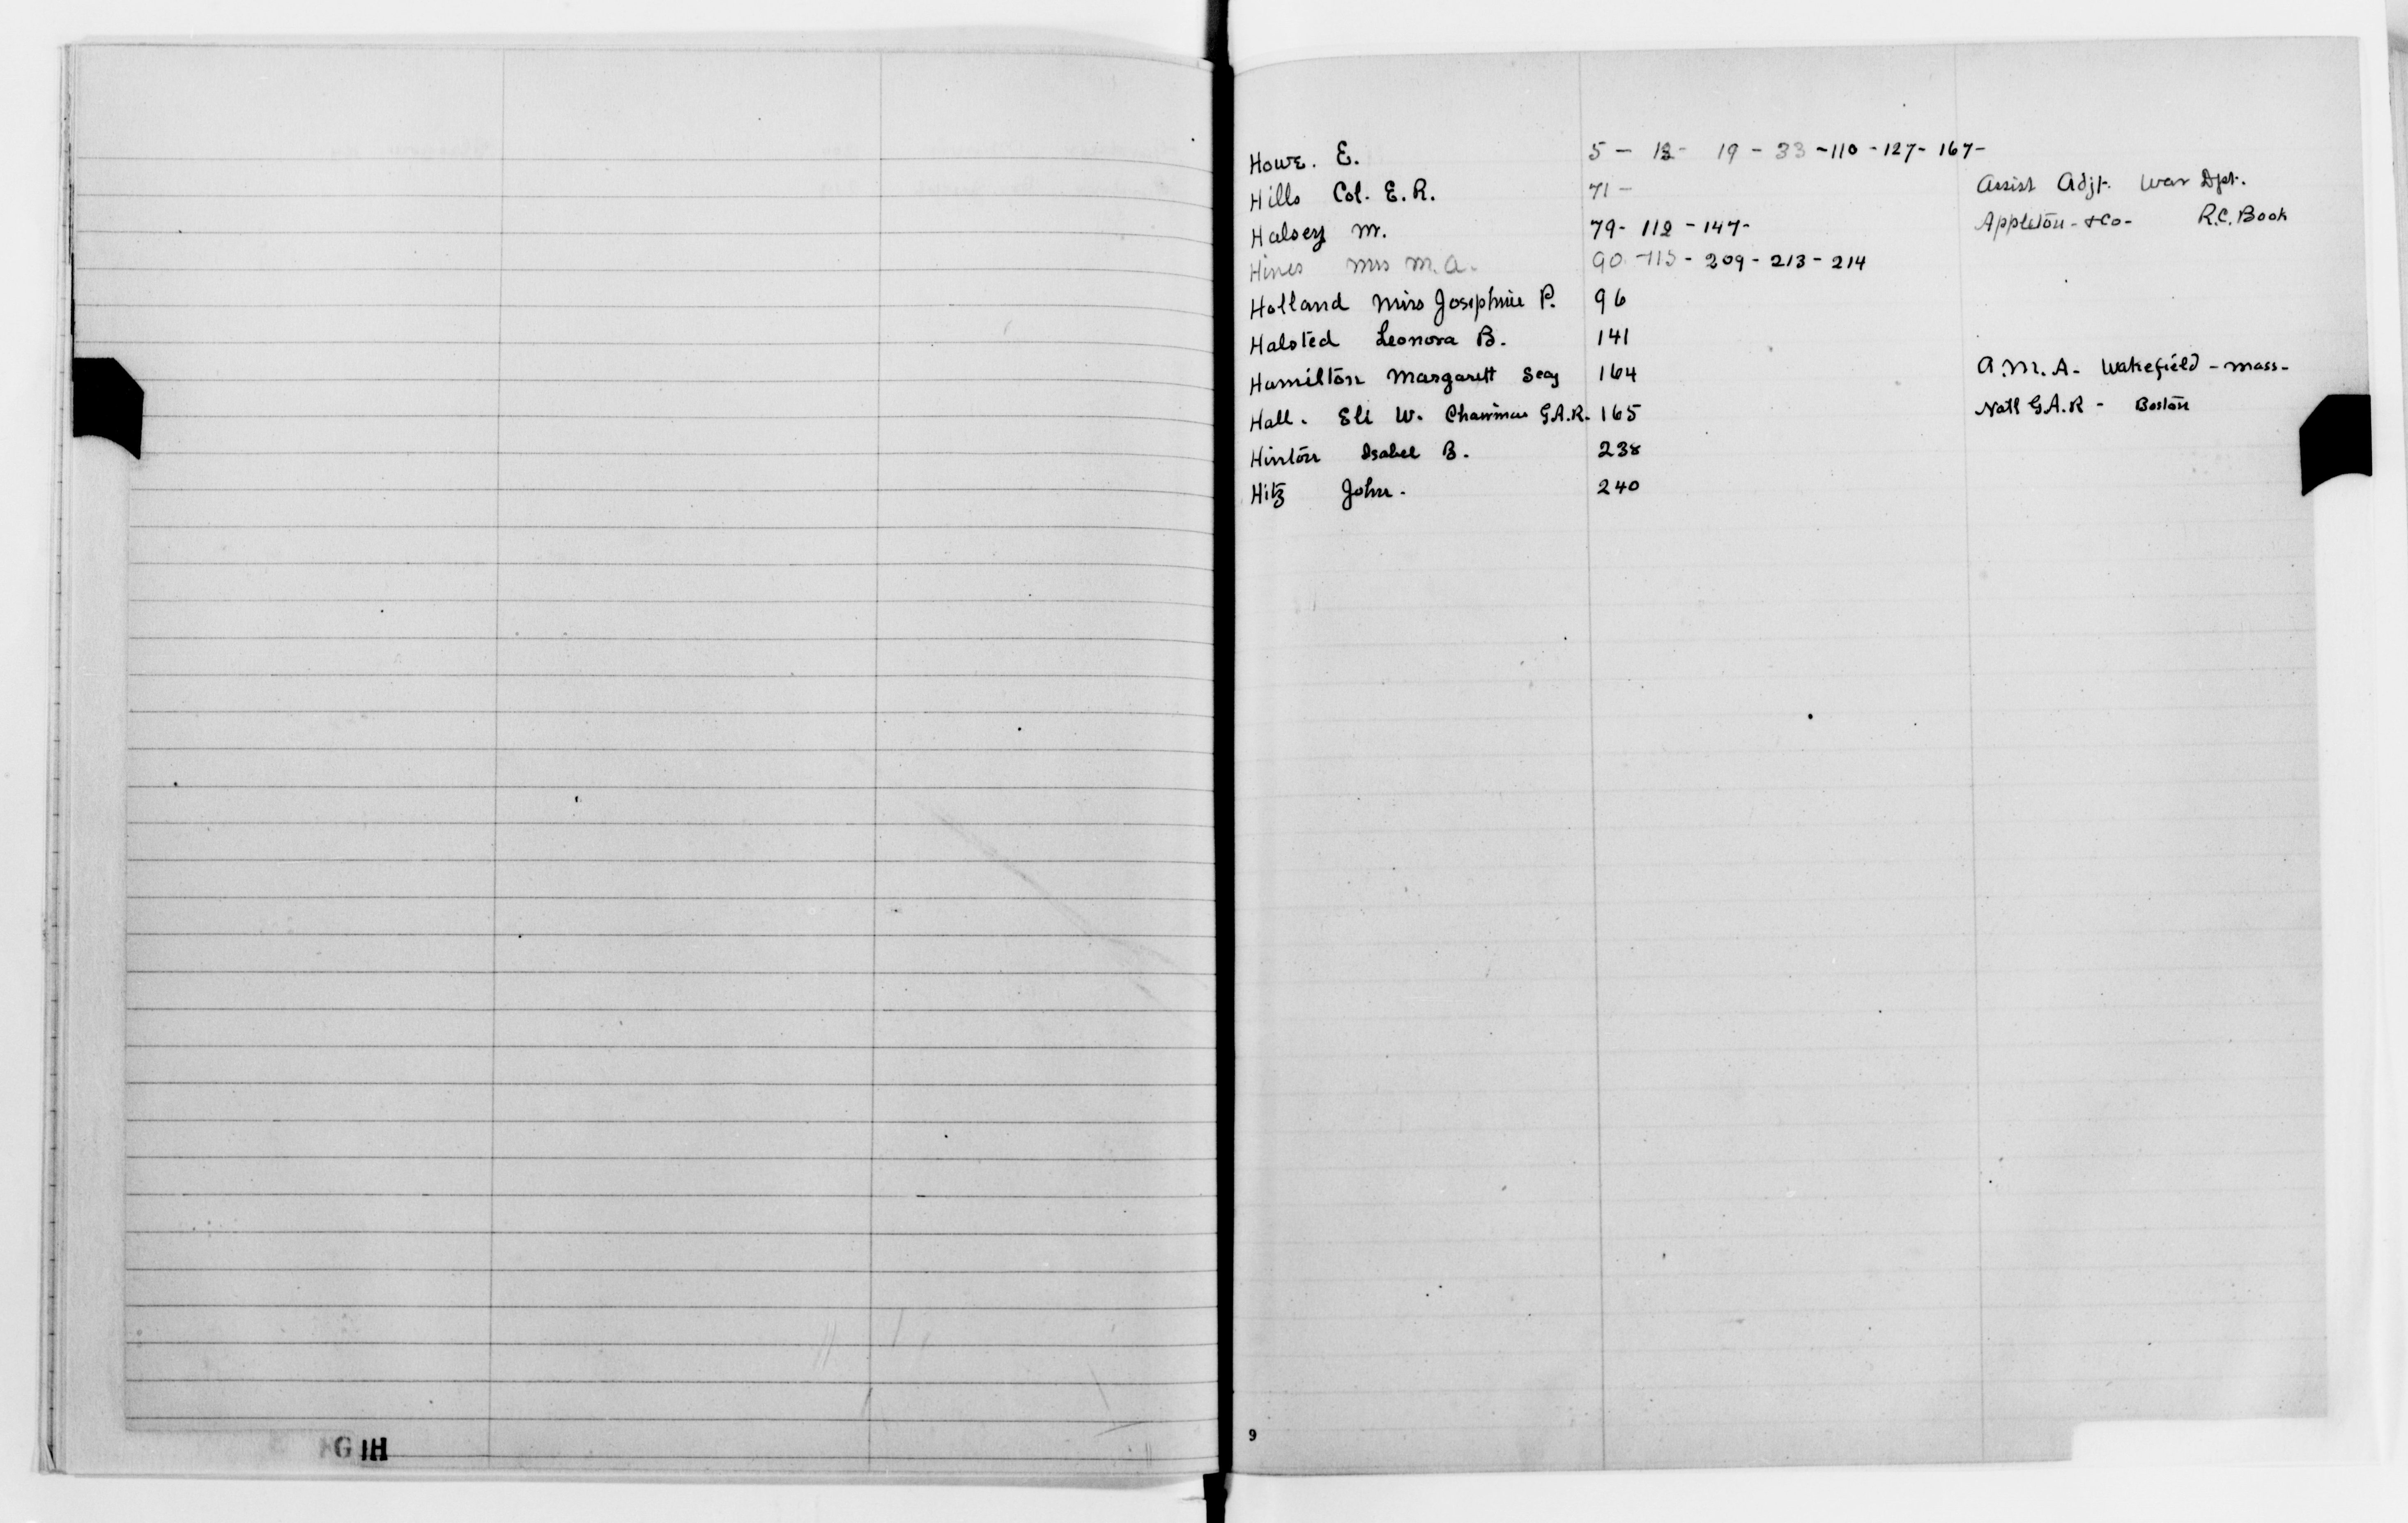 Howe. E. 5 - 12 - 19 - 33 - 110 - 127 - 167 -
Hills Col. E. R. 71 - Assist Adjt. War Dpt.
Halsey M. 79 - 112 - 147 - Appleton - & Co - R.C. Book
Hines Mrs M. A. 90 - 115 - 209 - 213 - 214
Holland Miss Josephine P. 96
Halsted Leonora B. 141
Hamilton Margarett Seay 164 A. M. A - Wakefield - Mass -
Hall. Eli W. Chairman G.A.R. 165 Natl G.A.R - Boston
Hinton Isabel B. 238
Hitz John. 240
9
G H